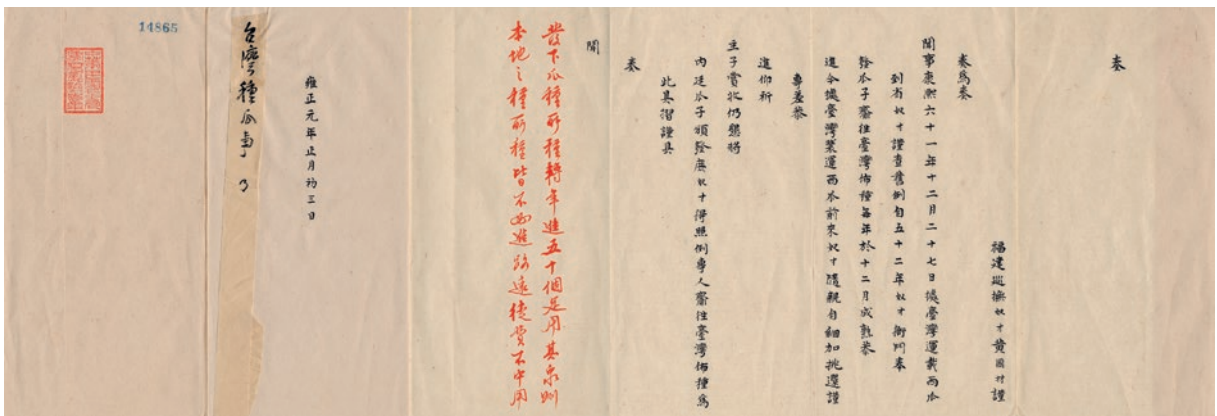 奏
福建巡撫奴才黃國材謹
奏為奏
聞事康熙六十一年十二月二十七日據臺灣運載西瓜
到省奴才謹查舊例自五十二年奴才衙門奉
發瓜子齎往臺灣佈種每年於十二月成熟恭
進今據臺灣業運西瓜前來奴才隨親自細加挑選謹
專差恭
進仰祈
主子賞收仍懇將
內廷瓜子頒發庶奴才得照例專人齎往臺灣佈種為
此具摺謹具
奏
聞
發下瓜種所種轉年進五十個足用其餘
本地之種所種皆不必進路遠徒費不中用
雍正元年正月初三日
台灣種瓜事
14865